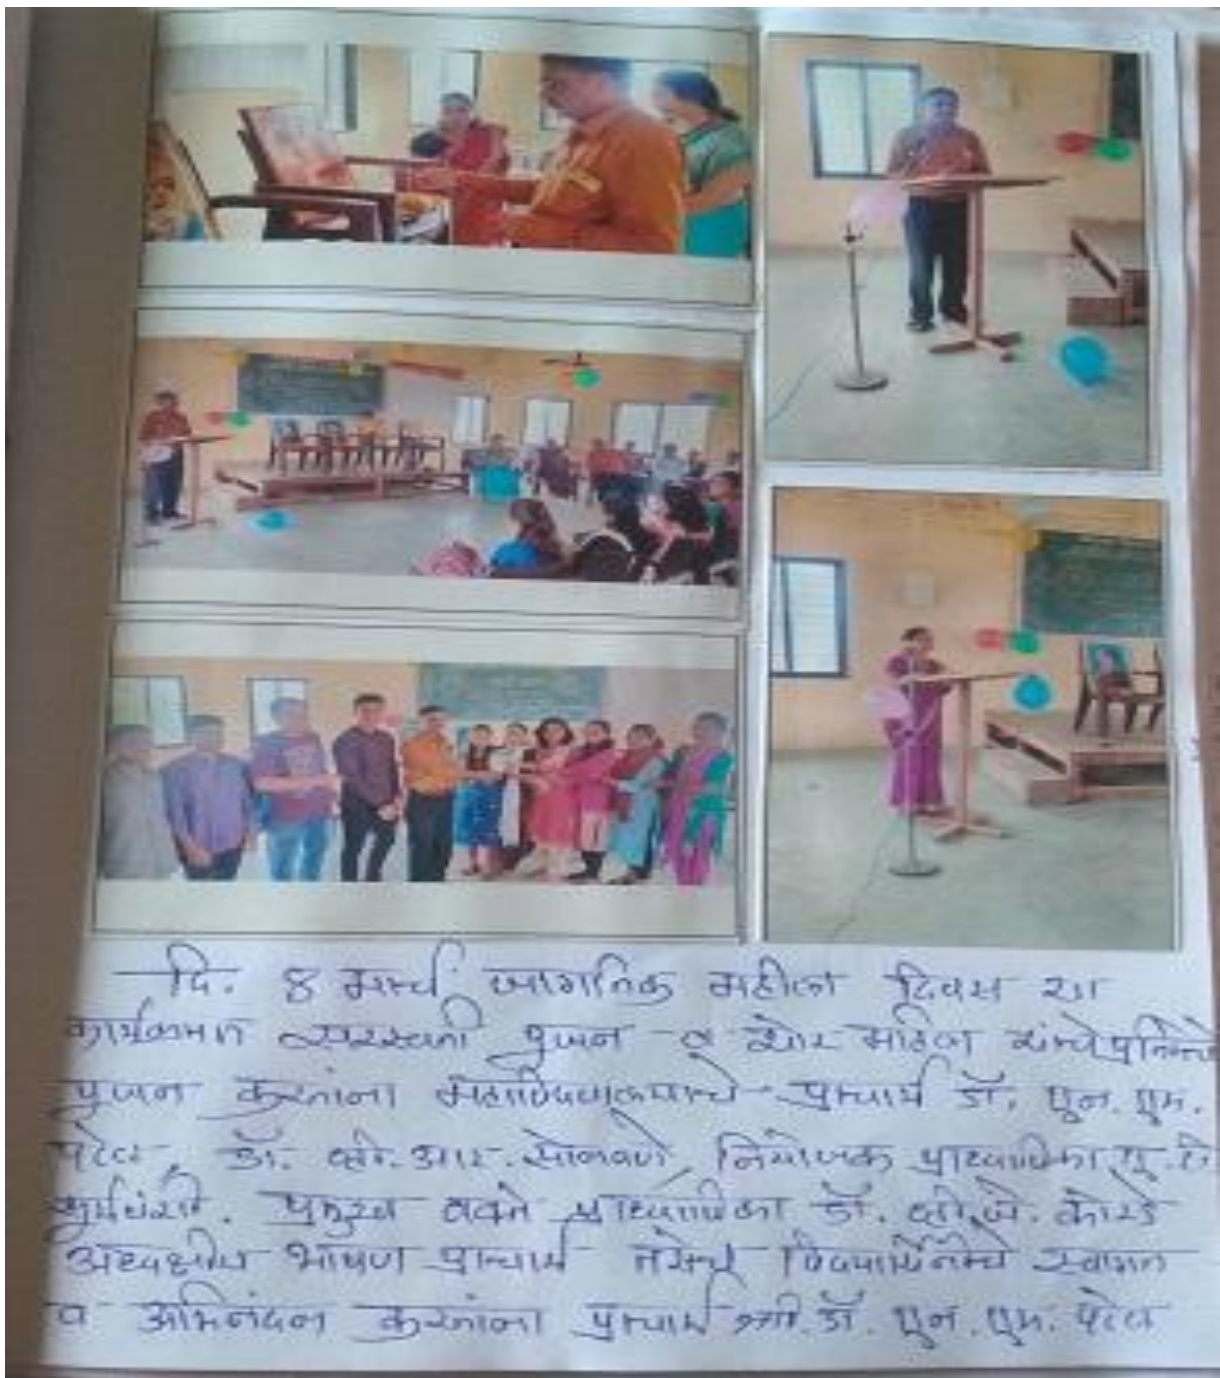 दि. 8 मार्च जागतिक महीला दिवस या
कार्यक्रमात सरस्वती पुजन व थोर महिला यांचे
पुजन करतांना महाविद्यालयाचे प्राचार्य डॉ. एन. एम.
पटेल, डॉ. व्ही. आर. सोनवणे, नियोजक प्राध्यापिका
सुर्यवंशी. प्रमुख वक्ते प्राध्यापिका डॉ. व्ही. जे.
अध्यक्षीय भाषण प्राचार्य तसेच विद्यार्थिनींचे स्वागत
व अभिनंदन करतांना प्राचार्य श्री. डॉ. एन. एम. पटेल